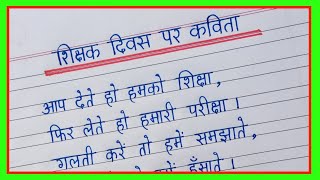 शिक्षक दिवस पर कविता
आप देते हो हमको शिक्षा,
फिर लेते हो हमारी परीक्षा ।
गलती करें तो हमें समझाते,
हँसाते ।